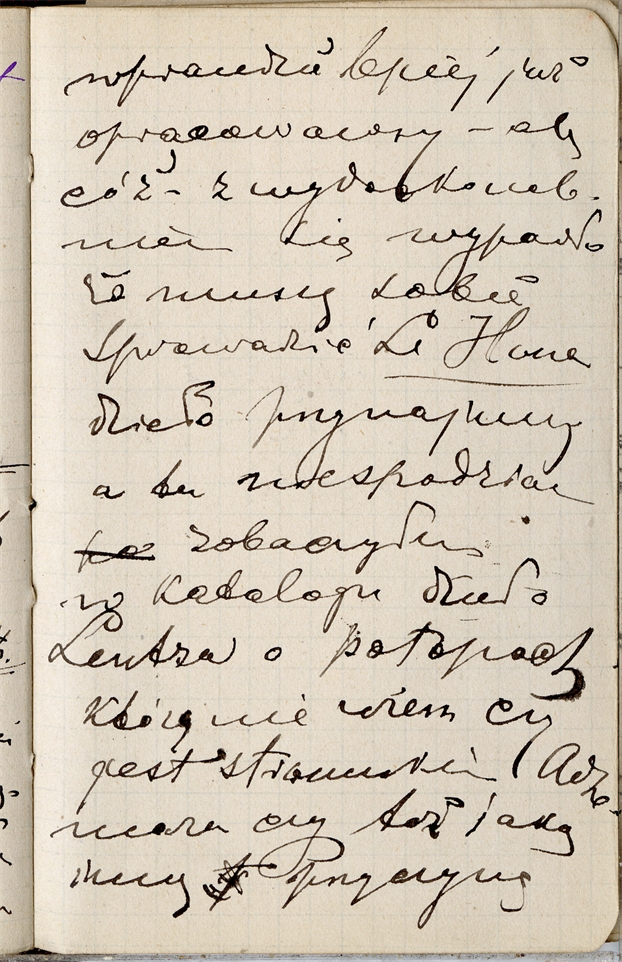 wprawdzie lepiej już
opracowany - ale
cóż - z wydoskonale-
niem się wypadło
że muszę sobie
sprowadzić Le Hona
dzieło przynajmniej
a tu niespodzian
zobaczyłem
w katalogu dzieło
Lentza o potopach
które nie wiem czy
jest stronnikiem Adhe-
mara czy też jaką
inną przyczynę